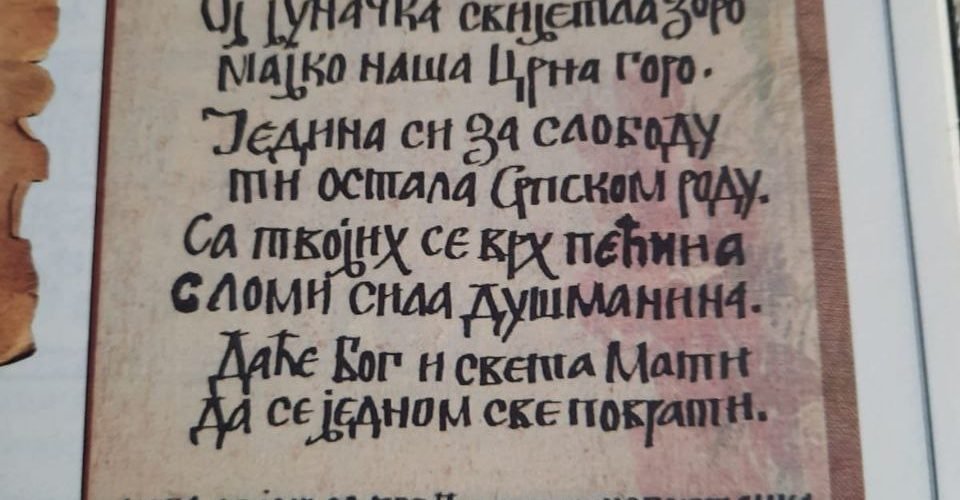 Ој јуначка свијетла зоро
Мајко наша Црна горо.
Једина си за слободу
ти остала Српском роду.
Са твојих се врх пећина
сломи сила душманина.
Даће Бог и света Мати
да се једном све поврати.